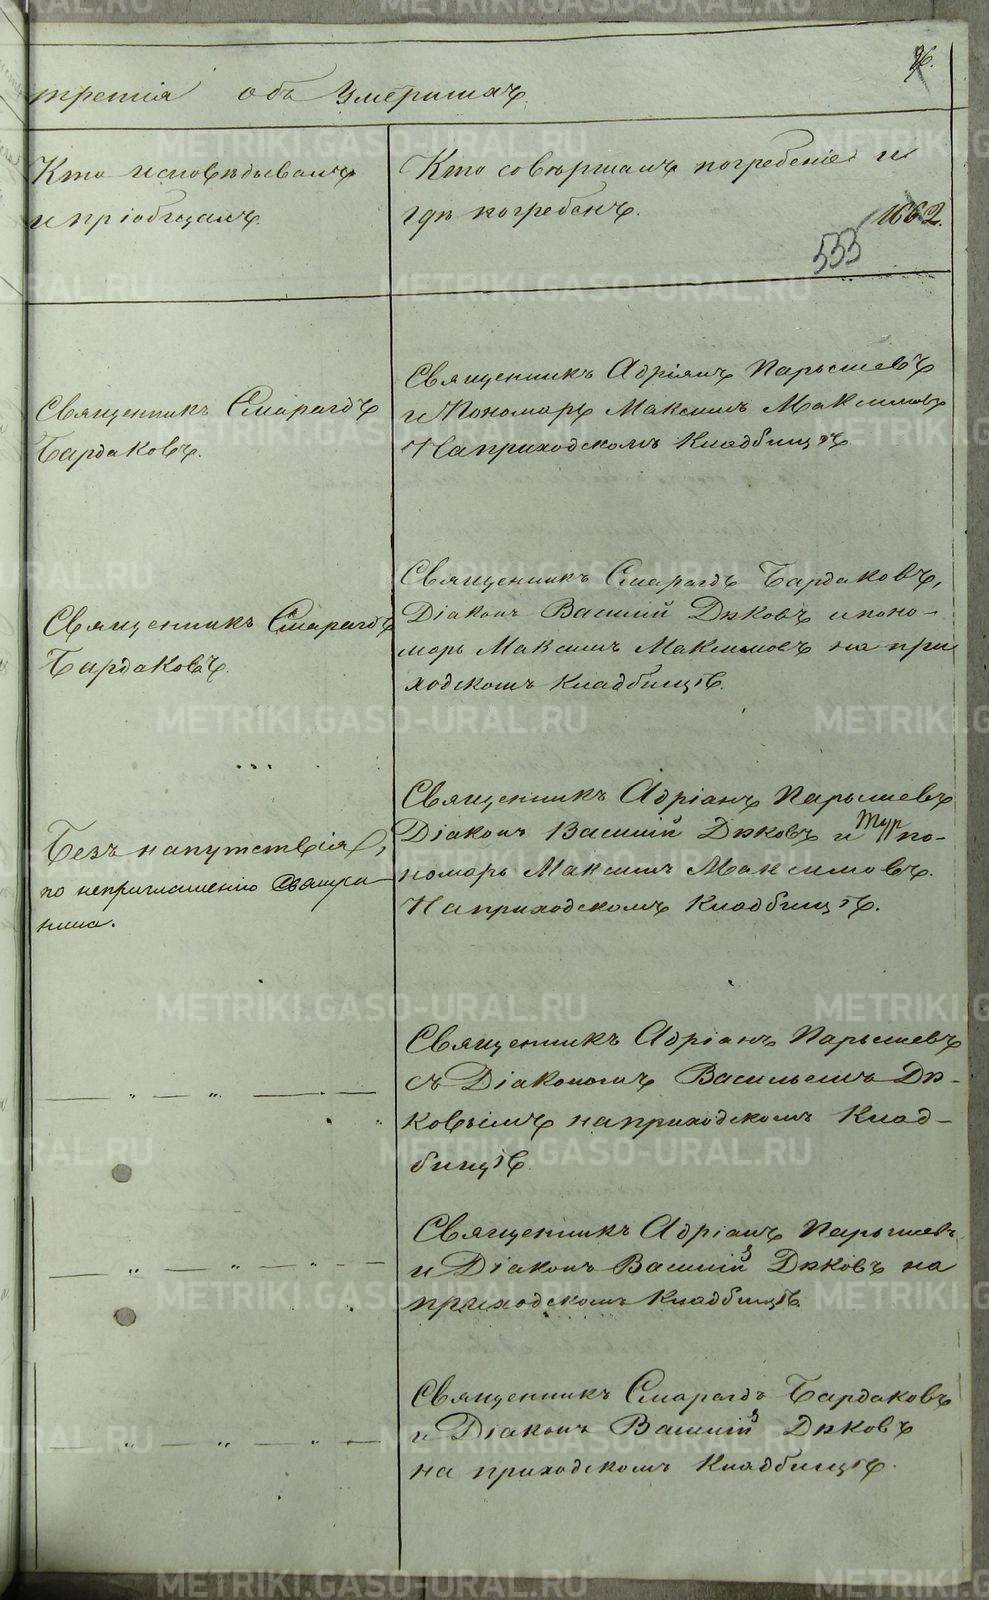 96.
третія объ Умершихъ.
Кто исповѣдывалъ
и пріобщалъ.
Кто совѣршалъ погребеніе и
гдѣ погребенъ.
1662.
533
Священникъ Смарагдъ
Бардаковъ.
Священникъ Адріянъ Парышевъ
и Пономарь Максимъ Максимовъ
На приходскомъ Кладбищѣ
Священникъ Смарагдъ
Бардаковъ.
Священникъ Смарагдъ Бардаковъ,
Діаконъ Василій Дѣковъ и поно-
марь Максимъ Максимовъ на при
ходскомъ Кладбищѣ.
Безъ напутствія,
по неприглашенію Священ
ника.
Священникъ Адріанъ Парышевъ
Діаконъ Василій Дѣковъ и по-
номарь Максимъ Максимовъ.
На приходскомъ Кладбищѣ.
Священникъ Адріанъ Парышевъ
съ Діакономъ Васильемъ Дѣ-
ковымъ на приходскомъ Клад-
бищѣ.
Священникъ Адріанъ Парышевъ
и Діаконъ Василій Дѣковъ на
приходскомъ Кладбищѣ.
Священникъ Смарагдъ Бардаковъ
и Діаконъ Василій Дѣковъ
на приходскомъ Кладбищѣ.
METRIKI.GASO-URAL.RU